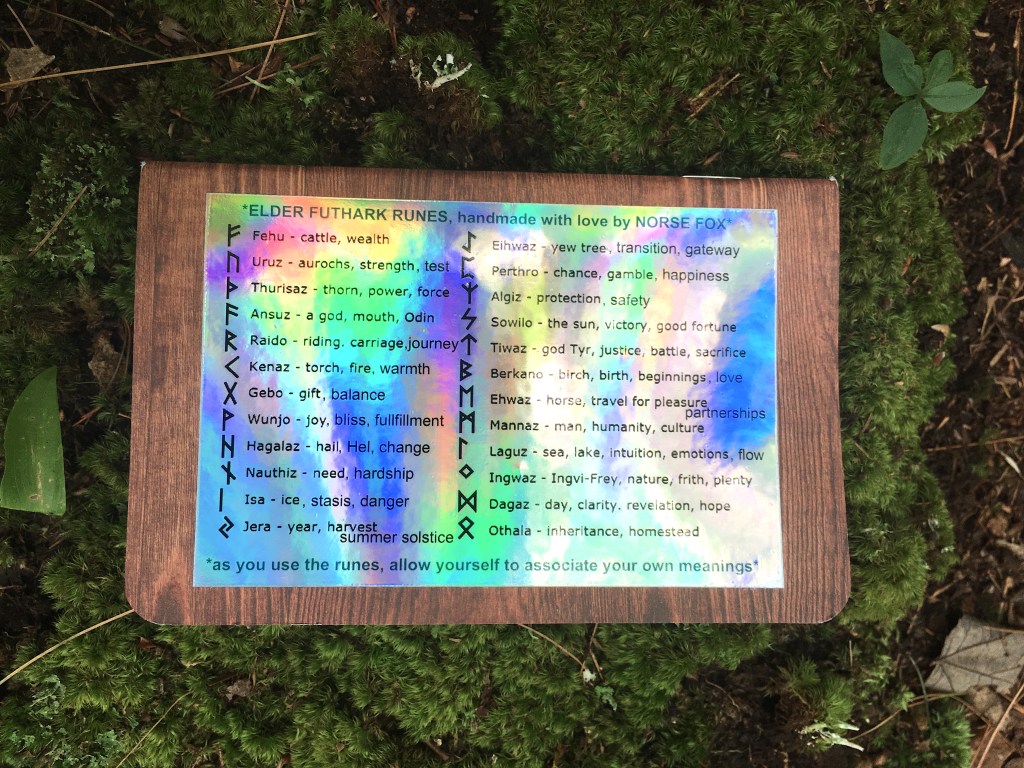 *ELDER FUTHARK RUNES, handmade with love by NORSE FOX*
ᚠ Fehu - cattle, wealth
ᚢ Uruz - aurochs, strength, test
ᚦ Thurisaz - thorn, power, force
ᚨ Ansuz - a god, mouth, Odin
ᚱ Raido - riding. carriage,journey
ᚲ Kenaz - torch, fire, warmth
ᚷ Gebo - gift, balance
ᚹ Wunjo - joy, bliss, fullfillment
ᚺ Hagalaz - hail, Hel, change
ᚾ Nauthiz - need, hardship
ᛁ Isa - ice, stasis, danger
ᛃ Jera - year, harvest
summer solstice
ᛇ Eihwaz - yew tree, transition, gateway
ᛈ Perthro - chance, gamble, happiness
ᛉ Algiz - protection, safety
ᛊ Sowilo - the sun, victory, good fortune
ᛏ Tiwaz - god Tyr, justice, battle, sacrifice
ᛒ Berkano - birch, birth, beginnings, love
ᛖ Ehwaz - horse, travel for pleasure
partnerships
ᛗ Mannaz - man, humanity, culture
ᛚ Laguz - sea, lake, intuition, emotions, flow
ᛜ Ingwaz - Ingvi-Frey, nature, frith, plenty
ᛞ Dagaz - day, clarity. revelation, hope
ᛟ Othala - inheritance, homestead
*as you use the runes, allow yourself to associate your own meanings*